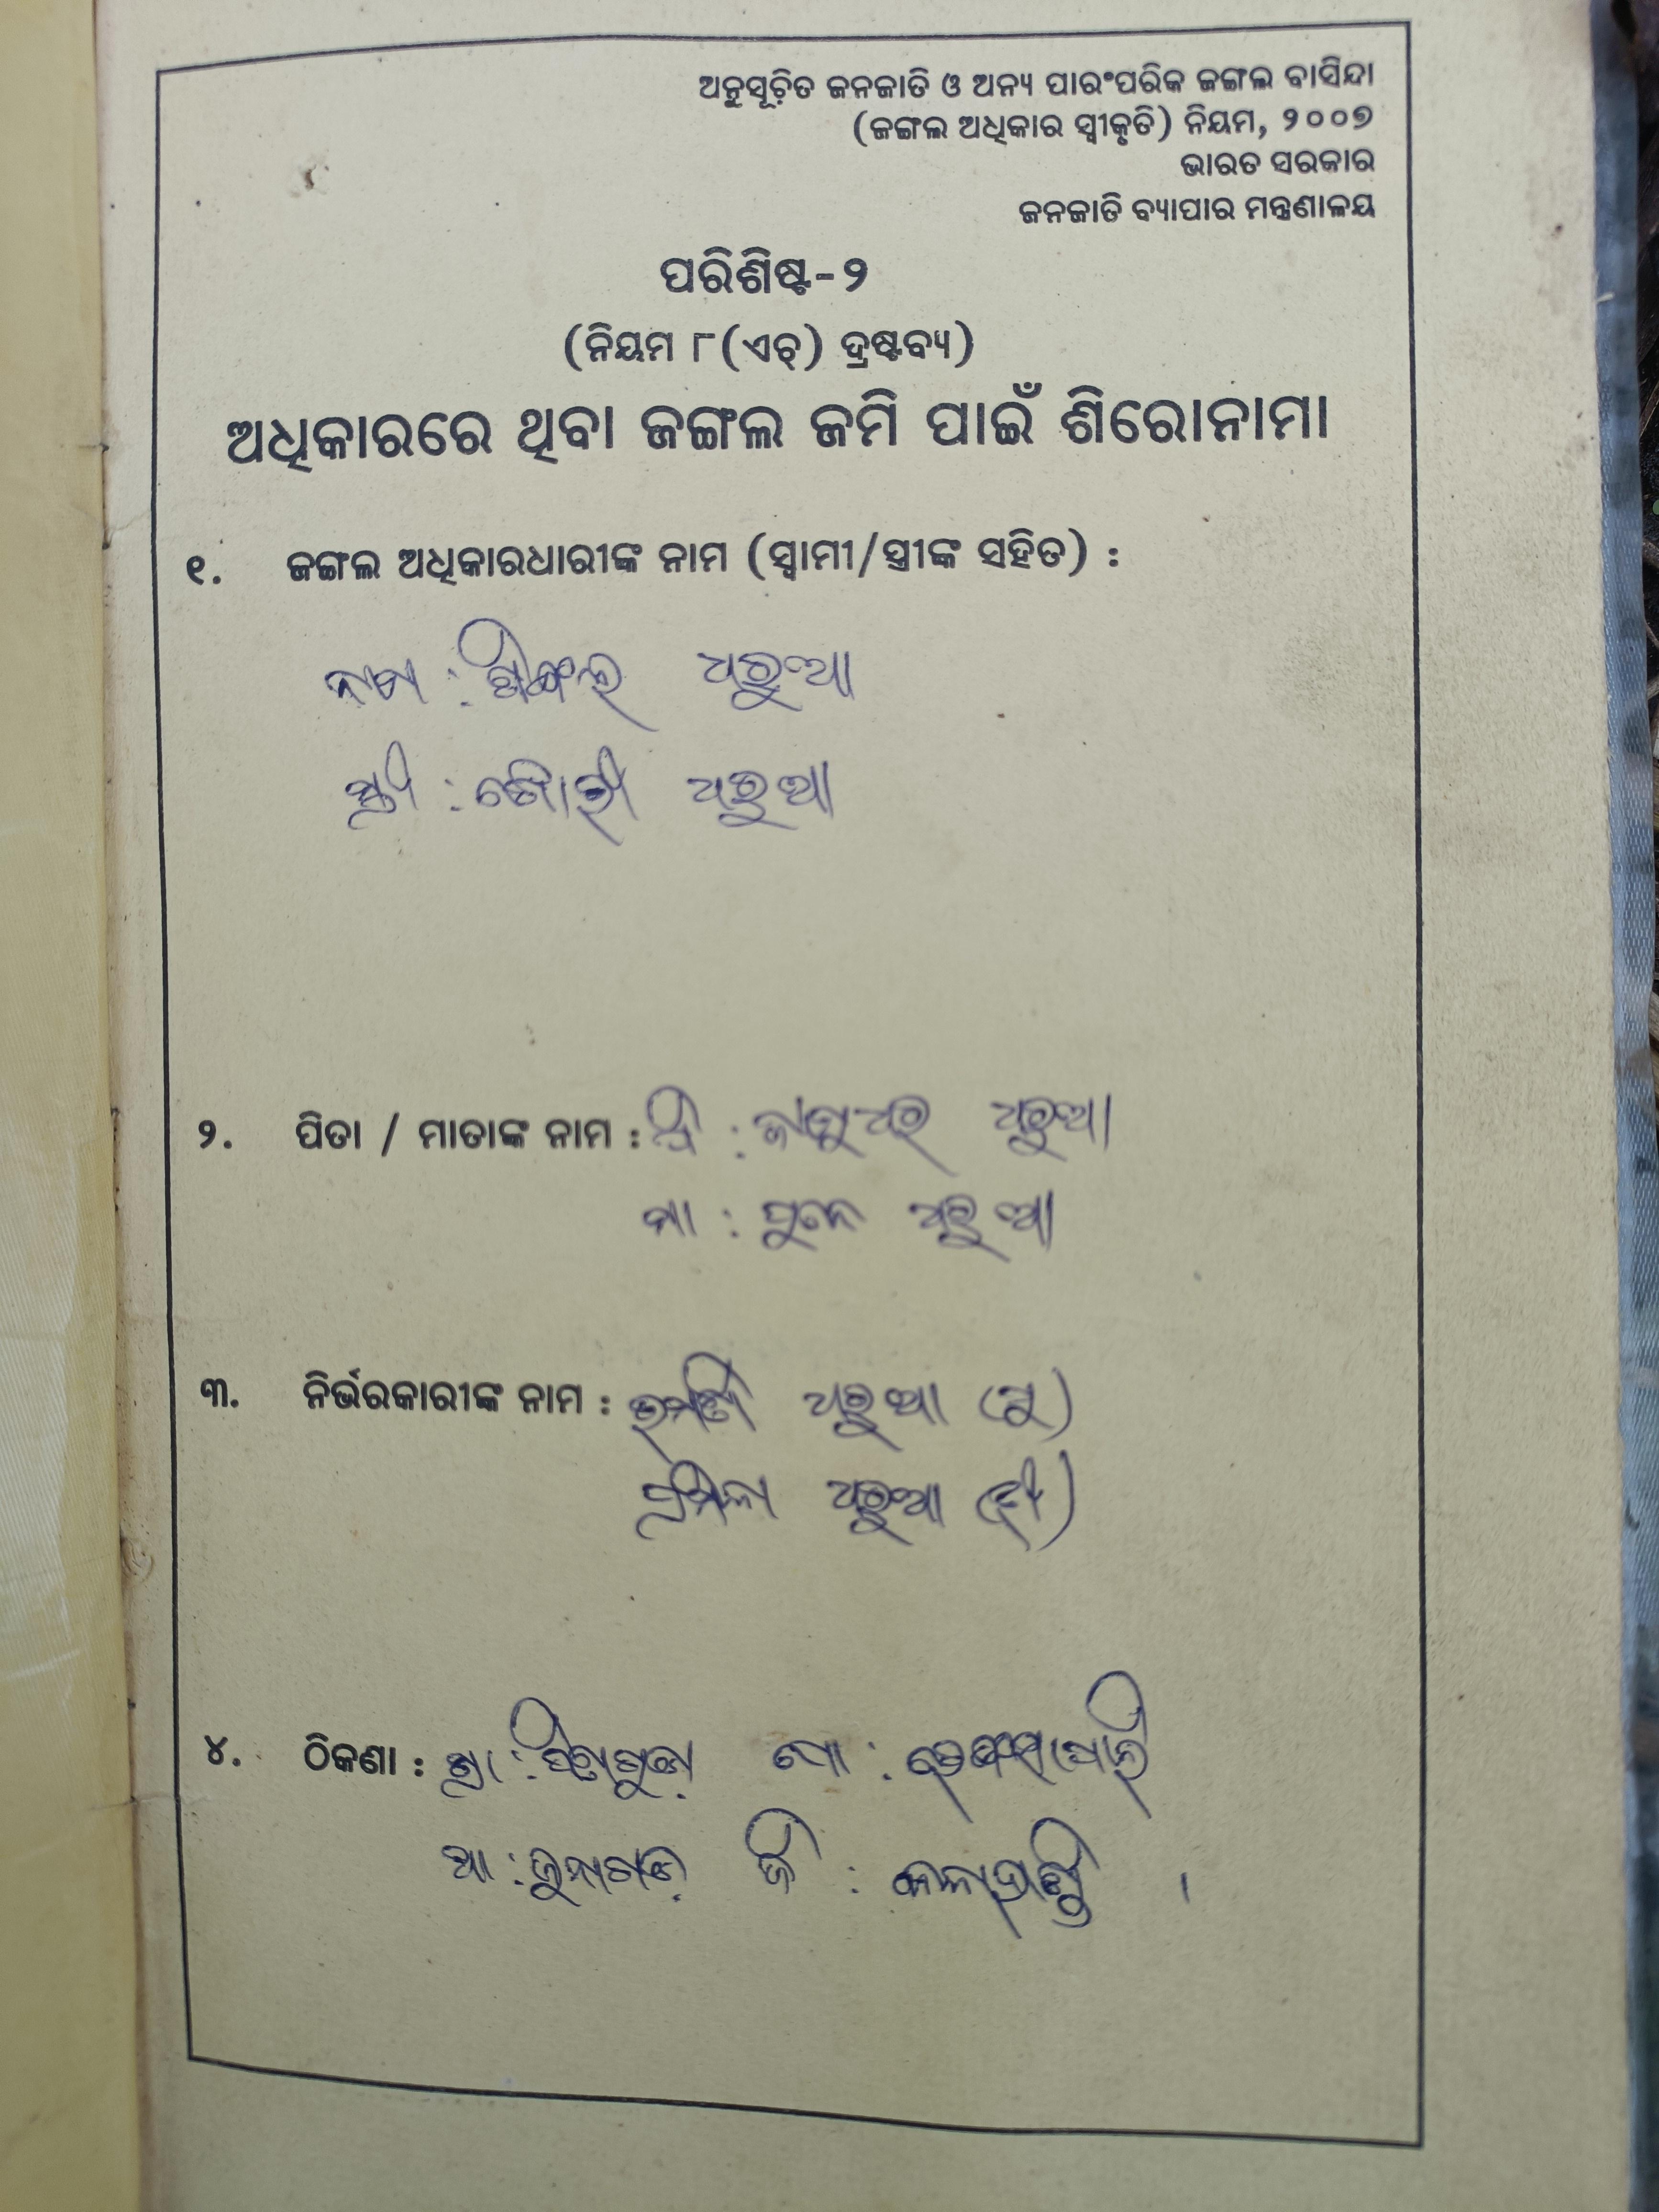 ଅନୁସୂଚିତ ଜନଜାତି ଓ ଅନ୍ୟ ପାରଂପରିକ ଜଙ୍ଗଲ ବାସିନ୍ଦା
(ଜଙ୍ଗଲ ଅଧିକାର ସ୍ୱୀକୃତି) ନିୟମ, ୨୦୦୭
ଭାରତ ସରକାର
ଜନଜାତି ବ୍ୟାପାର ମନ୍ତ୍ରଣାଳୟ
ପରିଶିଷ୍ଟ-୨
(ନିୟମ ୮(ଏଚ୍) ଦ୍ରଷ୍ଟବ୍ୟ)
ଅଧିକାରରେ ଥିବା ଜଙ୍ଗଲ ଜମି ପାଇଁ ଶିରୋନାମା
୧. ଜଙ୍ଗଲ ଅଧିକାରଧାରୀଙ୍କ ନାମ (ସ୍ୱାମୀ/ସ୍ତ୍ରୀଙ୍କ ସହିତ) :
ନାମ : ଧରୁଆ
ସ୍ତ୍ରୀ : ଧରୁଆ
୨. ପିତା / ମାତାଙ୍କ ନାମ : ପି : ଧରୁଆ
ମା : ଧରୁଆ
୩. ନିର୍ଭରକାରୀଙ୍କ ନାମ : ଧରୁଆ (ପୁ)
ପ୍ରମିଳା ଧରୁଆ (ଝି)
୪. ଠିକଣା : ଗ୍ରା : ପୋ :
ଥା : ଜୁନାଗଡ଼ ଜି : କଳାହାଣ୍ଡି ।